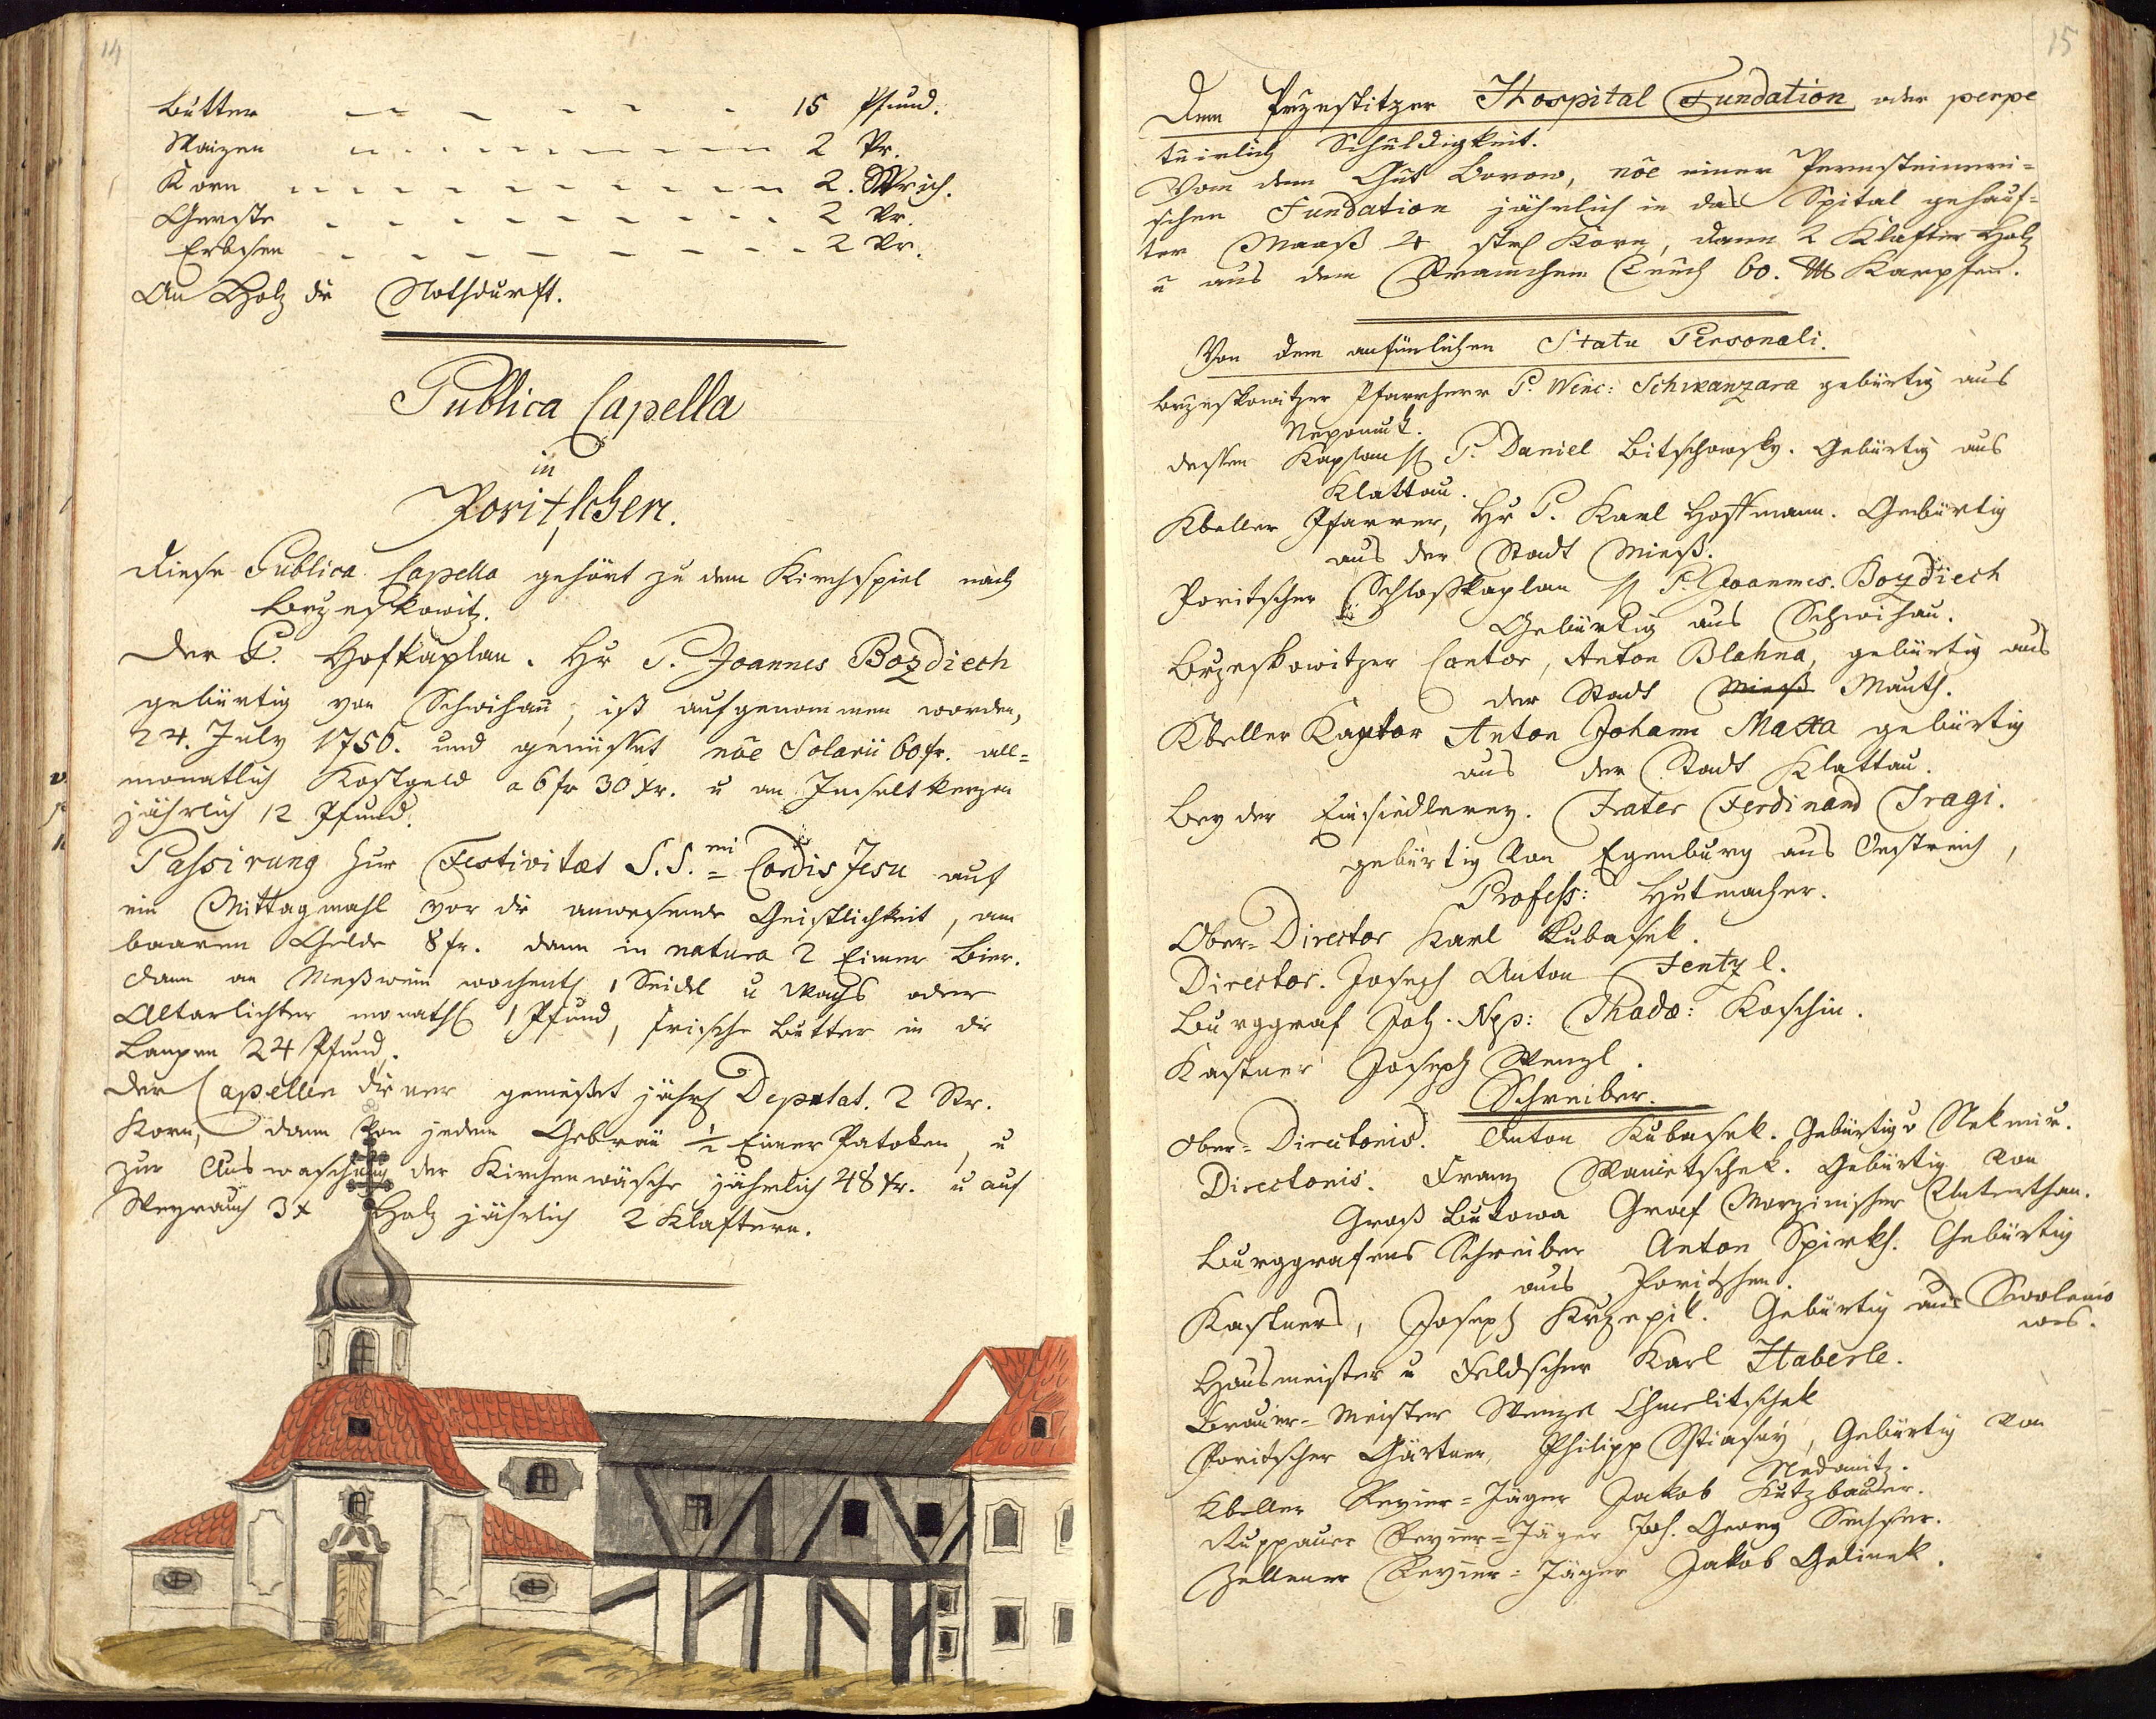 14
Butter - - - - - - 15 Pfund.
Waizen - - - - - - - - - - 2 Str.
Korn - - - - - - - - - - - 2. Strich.
Gerste - - - - - - - - - 2 Str.
Erbsen - - - - - - - - - 2 Str.
An Holz die Nothdurft.
Publica Capella
in
Poritschen.
Diese Publica Capella gehört zu dem Kirchspiel nach
Brzeskowitz.
Der P. Hofkaplan. Hr P. Joannes Bozdiech
gebürtig von Schwihau, ist aufgenommen worden,
24. July 1756. und genüsset nõe Solarii 60 fr. all=
monatlich Kostgeld a 6 fr 30 xr. u an Inseltkerzen
jährlich 12 Pfund.
Passirung zur Festivitæt S.S.mi Cordis Jesu auf
ein Mittagmahl vor die anwesende Geistlichkeit, am
baaren Gelde 8 fr. dann in natura 2 Eimer Bier.
dann an Meßwein wochentl. 1 Seidl u Wachs oder
Altarlichter monathl. 1 Pfund, frische Butter in die
Lampen 24 Pfund.
Der Capellendiener genießet jährl Deputat. 2 Str.
Korn, dann von jedem Gebräu ½ Eimer Patoken, u
zur Auswaschung der Kirchenwäsche jährlich 48 xr. u auf
Weyrauch 3 x Holz jährlich 2 Klaftern.
15
Dem Przestitzer Hospital Fundation oder perpe
tuirlich Schuldigkeit.
Vom dem Gut Borow, nõe einer Pernsteineri=
schen Fundation jährlich in das Spital gehauf=
ter Maaß 4 str Korn, dann 2 Klafter Holz
u aus dem Teuch 60. ℔ Karpfen.
Von dem anfünlichen Statu Personali.
Brzeskowitzer Pfarrherr P. Wenc: Schwanzara gebürtig aus
Nepomuk.
dessen Kaplan H P. Daniel Bitschowsky. Gebürtig aus
Klattau.
Kbeller Pfarrer, Hr P. Karl Hoffmann. Gebürtig
aus der Stadt Mieß.
Poritscher Schloßkaplan H P. Joannes. Bozdiech
Gebürtig aus Schwihau.
Brzeskowitzer Cantor, Anton Blahna, gebürtig aus
der Stadt Mieß Mauth.
Kbeller Kantor Anton Johann Matta gebürtig
aus der Stadt Klattau.
Bey der Einsiedlerey. Frater Ferdinand Tragi.
gebürtig von Egenburg aus Oestreich,
Profess: Hutmacher.
Ober=Director Karl Kubasek.
Director. Joseph Anton Fentzl.
Burggraf Joh. Nep: Thadæ: Koschin.
Kastner Joseph Wenzl.
Schreiber.
Ober=Directoris. Anton Kubasek. Gebürtig v Nekmir.
Directoris. Franz Wanietschek. Gebürtig von
Groß Bukowa Graf Morzinischer Unterthan.
Burggrafens Schreiber Anton Spirkh. Gebürtig
aus Poritschen.
Kastners, Joseph Krzepik. Gebürtig aus Smolenio
wes.
Hausmeister u Feldscher Karl Haberle.
Brauer=Meister Wenzl Chmelitschek
Poritscher Gärtner, Philipp Stiasny, Gebürtig von
Nedanitz.
Kbeller Revier=Jäger Jakob Kutzbauer.
Ruppauer Revier=Jäger Joh. Georg
Zellener Revier=Jäger Jakob Gelinek.